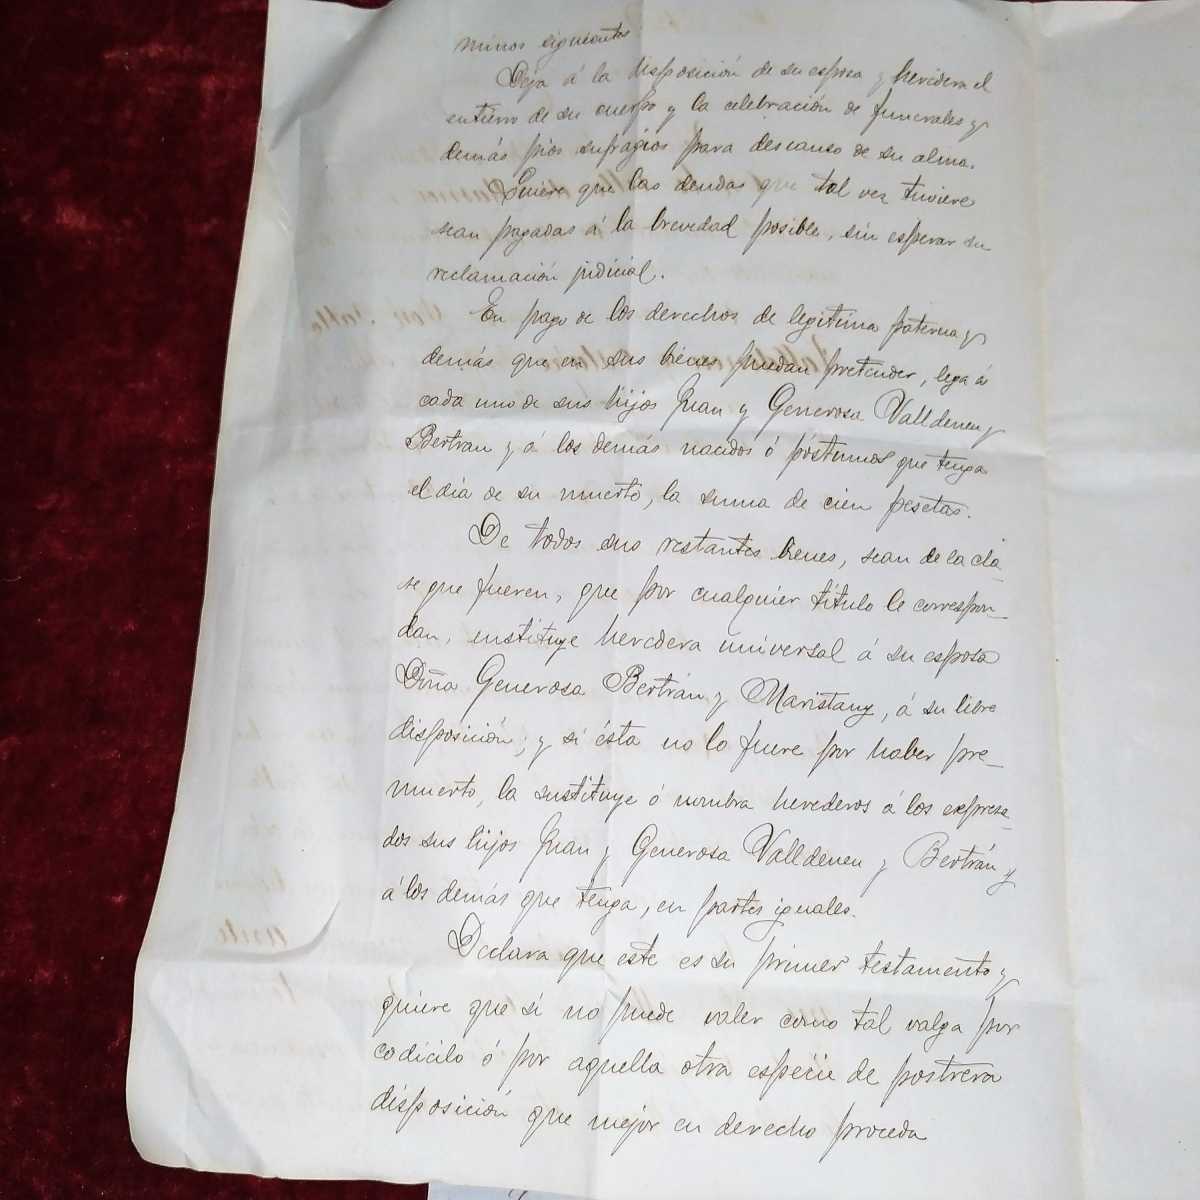 minos siguientes
Deja á la disposición de su esposa y heredera el
entierro de su cuerpo y la celebración de funerales y
demás pios sufragios para descanso de su alma.
Quiere que las deudas que tal vez tuviere
sean pagadas á la brevedad posible, sin esperar su
reclamación judicial.
En pago de los derechos de legitima paterna y
demás que en sus bienes puedan pretender, lega á
cada uno de sus hijos Juan y Generosa Valldeneu y
Bertran y á los demás nacidos ó póstumos que tenga
el dia de su muerte, la suma de cien pesetas.
De todos sus restantes bienes, sean de la cla-
se que fueren, que por cualquier título le correspon-
dan, instituye heredera universal á su esposa
Doña Generosa Bertrán y Maristany, á su libre
disposición; y si ésta no lo fuere por haber pre-
muerto, la sustituye ó nombra herederos á los expresa-
dos sus hijos Juan y Generosa Valldeneu y Bertrán y
á los demás que tenga, en partes iguales.
Declara que este es su primer testamento y
quiere que si no puede valer como tal valga por
codicilo ó por aquella otra especie de postrera
disposición que mejor en derecho proceda